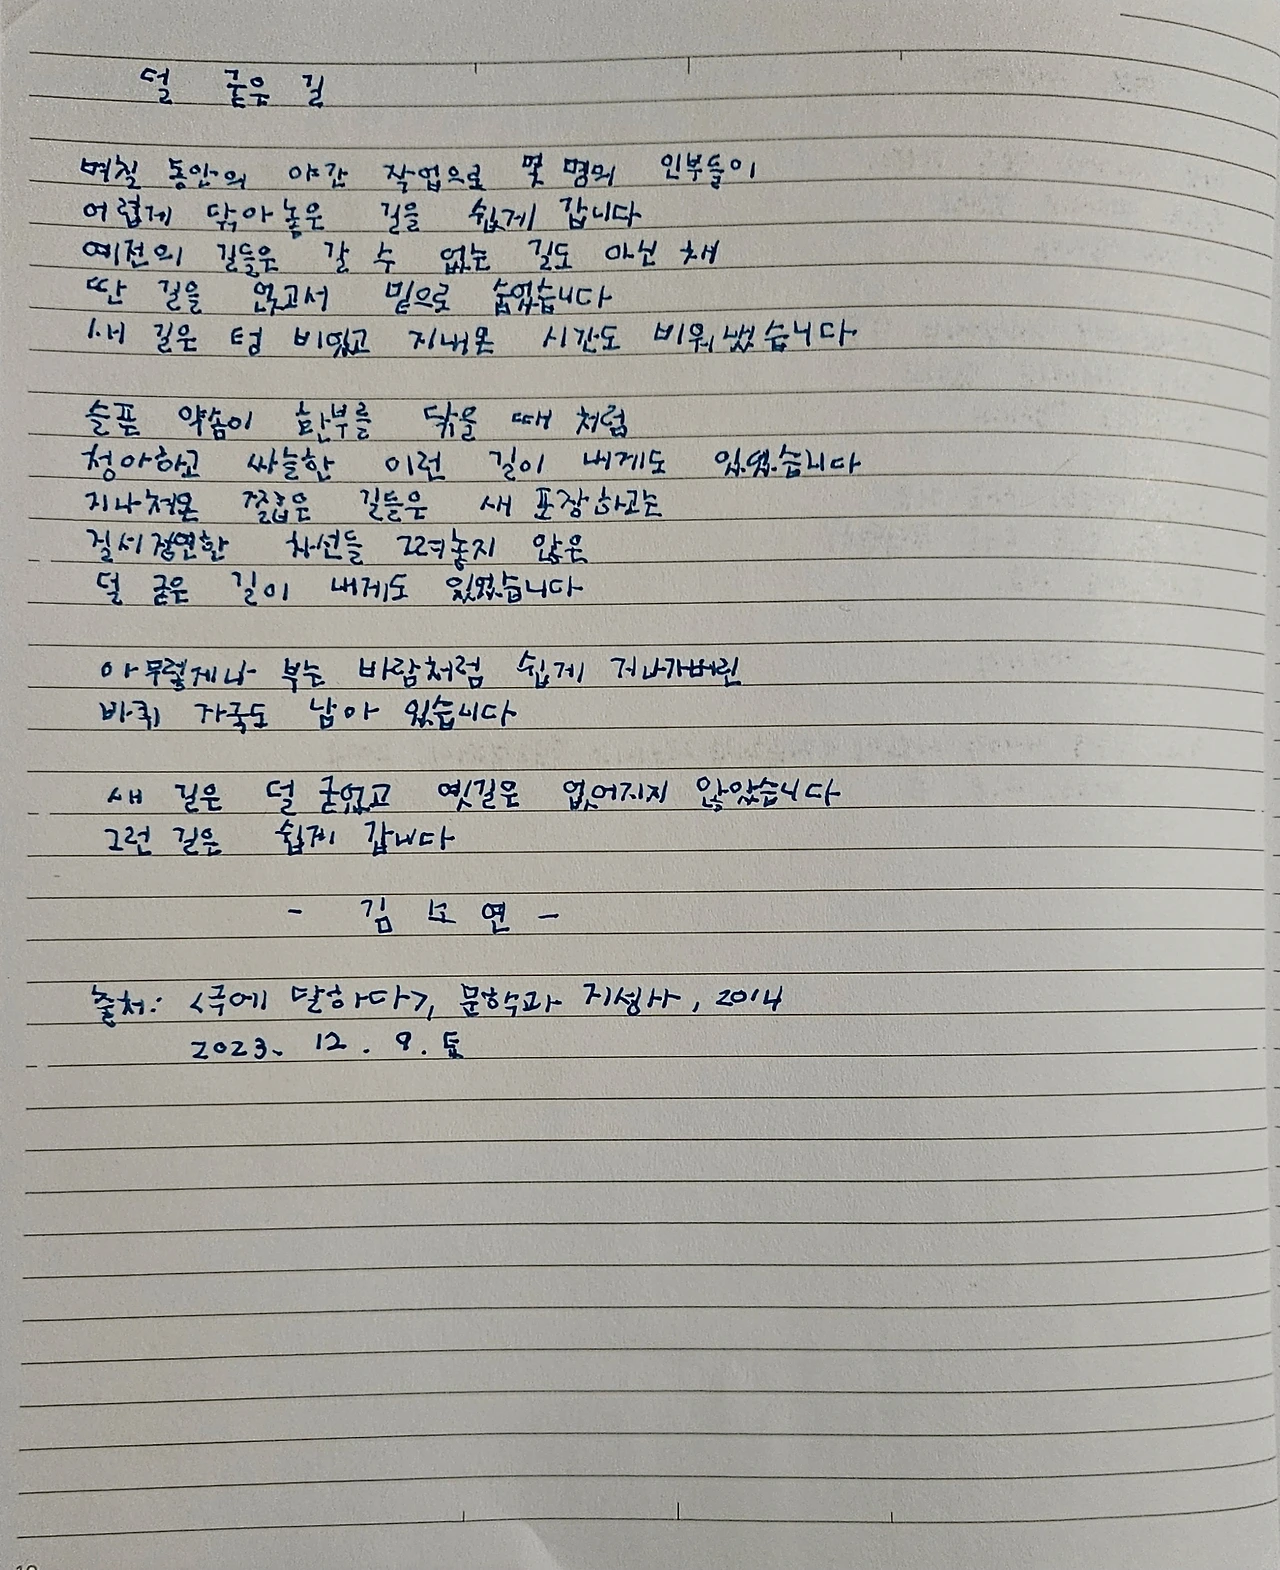 덜 굳은 길
며칠 동안의 야간 작업으로 몇 명의 인부들이
어렵게 닦아놓은 길을 쉽게 갑니다
예전의 길들은 갈 수 없는 길도 아닌 채
딴 길을 얹고서 밑으로 숨었습니다
새 길은 텅 비었고 지내온 시간도 비워냈습니다
슬픈 약솜이 환부를 닦을 때 처럼
청아하고 싸늘한 이런 길이 내게도 있었습니다
지나쳐온 좁은 길들은 새 포장하고는
질서정연한 차선들 그려놓지 않은
덜 굳은 길이 내게도 있었습니다
아무렇게나 부는 바람처럼 쉽게 지나가버린
바퀴 자국도 남아 있습니다
새 길은 덜 굳었고 옛길은 없어지지 않았습니다
그런 길은 쉽게 갑니다
- 김 소 연 -
출처: <극에 달하다>, 문학과 지성사, 2014
2023. 12. 9. 토